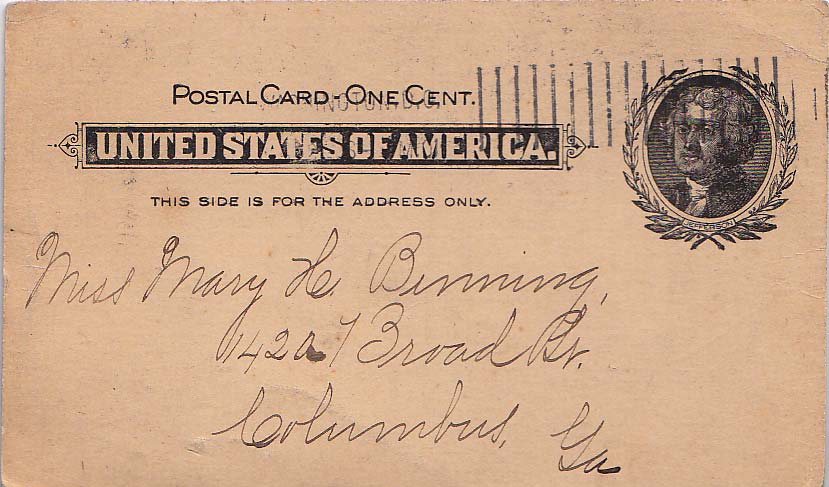 POSTAL CARD-ONE CENT.
UNITED STATES OF AMERICA.
THIS SIDE IS FOR THE ADDRESS ONLY.
JEFFERSON
Miss Mary H. Benning,
Broad St.
Columbus, Ga